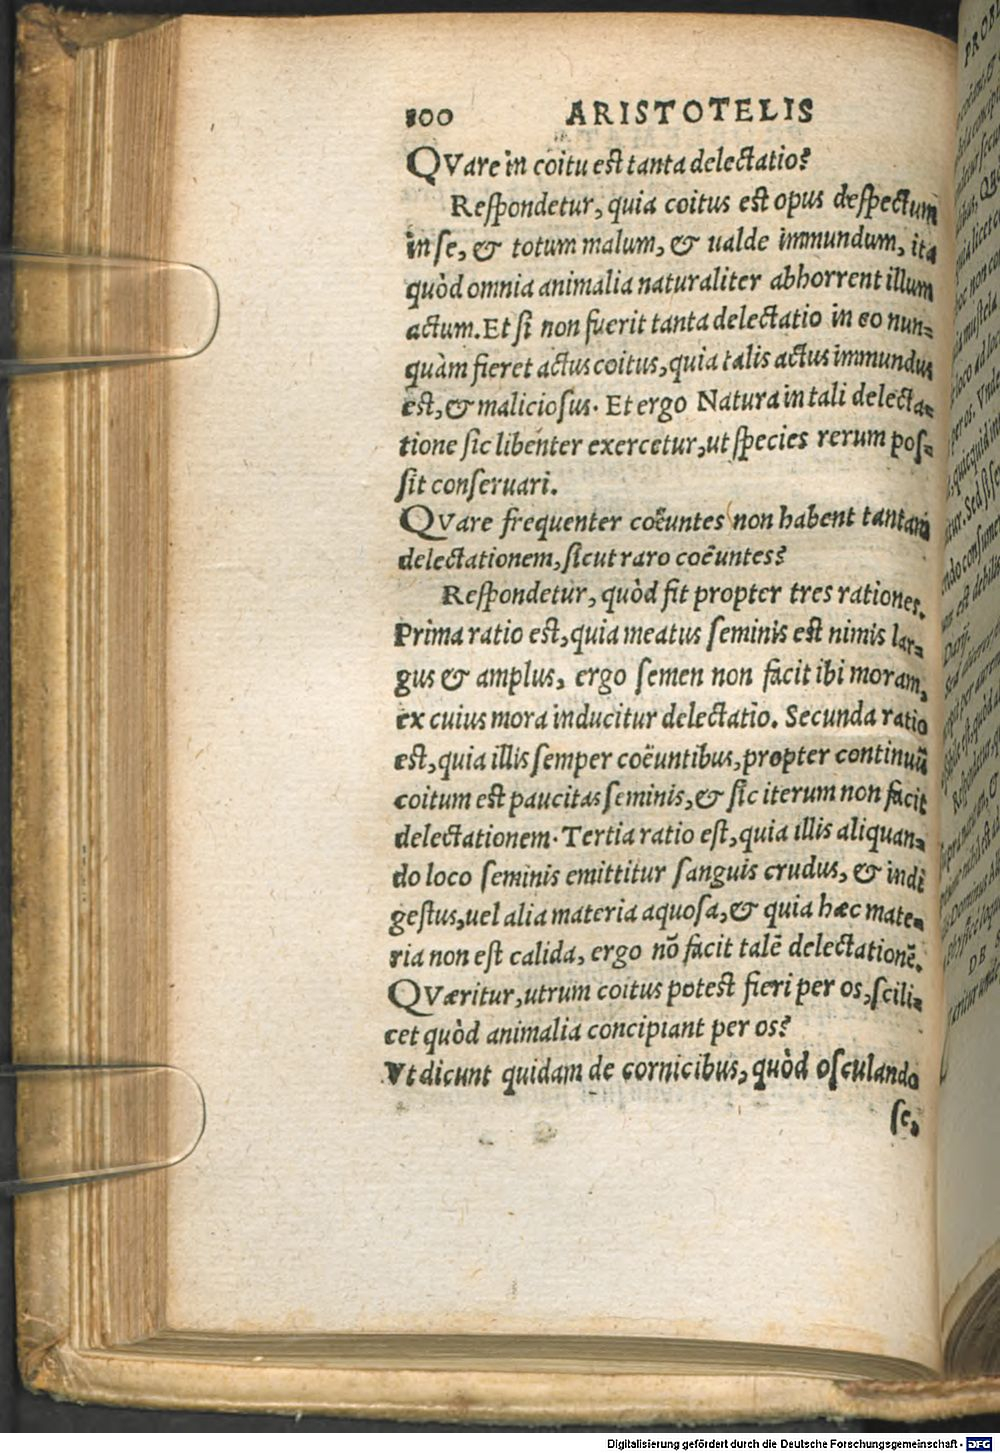 100 ARISTOTELIS
QVare in coitu est tanta delectatio?
Reſpondetur, quia coitus est opus deſpectum
in ſe, & totum malum, & ualde immundum, ita
quòd omnia animalia naturaliter abhorrent illum
actum. Et ſi non fuerit tanta delectatio in eo nun=
quàm fieret actus coitus, quia talis actus immundus
est, & malicioſus. Et ergo Natura in tali delecta=
tione ſic libenter exercetur, ut ſpecies rerum poſ=
ſit conſeruari.
QVare frequenter coëuntes non habent tantam
delectationem, ſicut raro coëuntes?
Reſpondetur, quòd fit propter tres rationes.
Prima ratio est, quia meatus ſeminis est nimis lar=
gus & amplus, ergo ſemen non facit ibi moram,
ex cuius mora inducitur delectatio. Secunda ratio
est, quia illis ſemper coëuntibus, propter continuũ
coitum est paucitas ſeminis, & ſic iterum non facit
delectationem. Tertia ratio eſt, quia illis aliquan=
do loco ſeminis emittitur ſanguis crudus, & indi
geſtus, uel alia materia aquoſa, & quia hæc mate=
ria non eſt calida, ergo nõ facit talẽ delectationẽ.
QVæritur, utrum coitus potest fieri per os, ſcili=
cet quòd animalia concipiant per os?
Vt dicunt quidam de cornicibus, quòd oſculando
ſe,
Digitalisierung gefördert durch die Deutsche Forschungsgemeinschaft - DFG